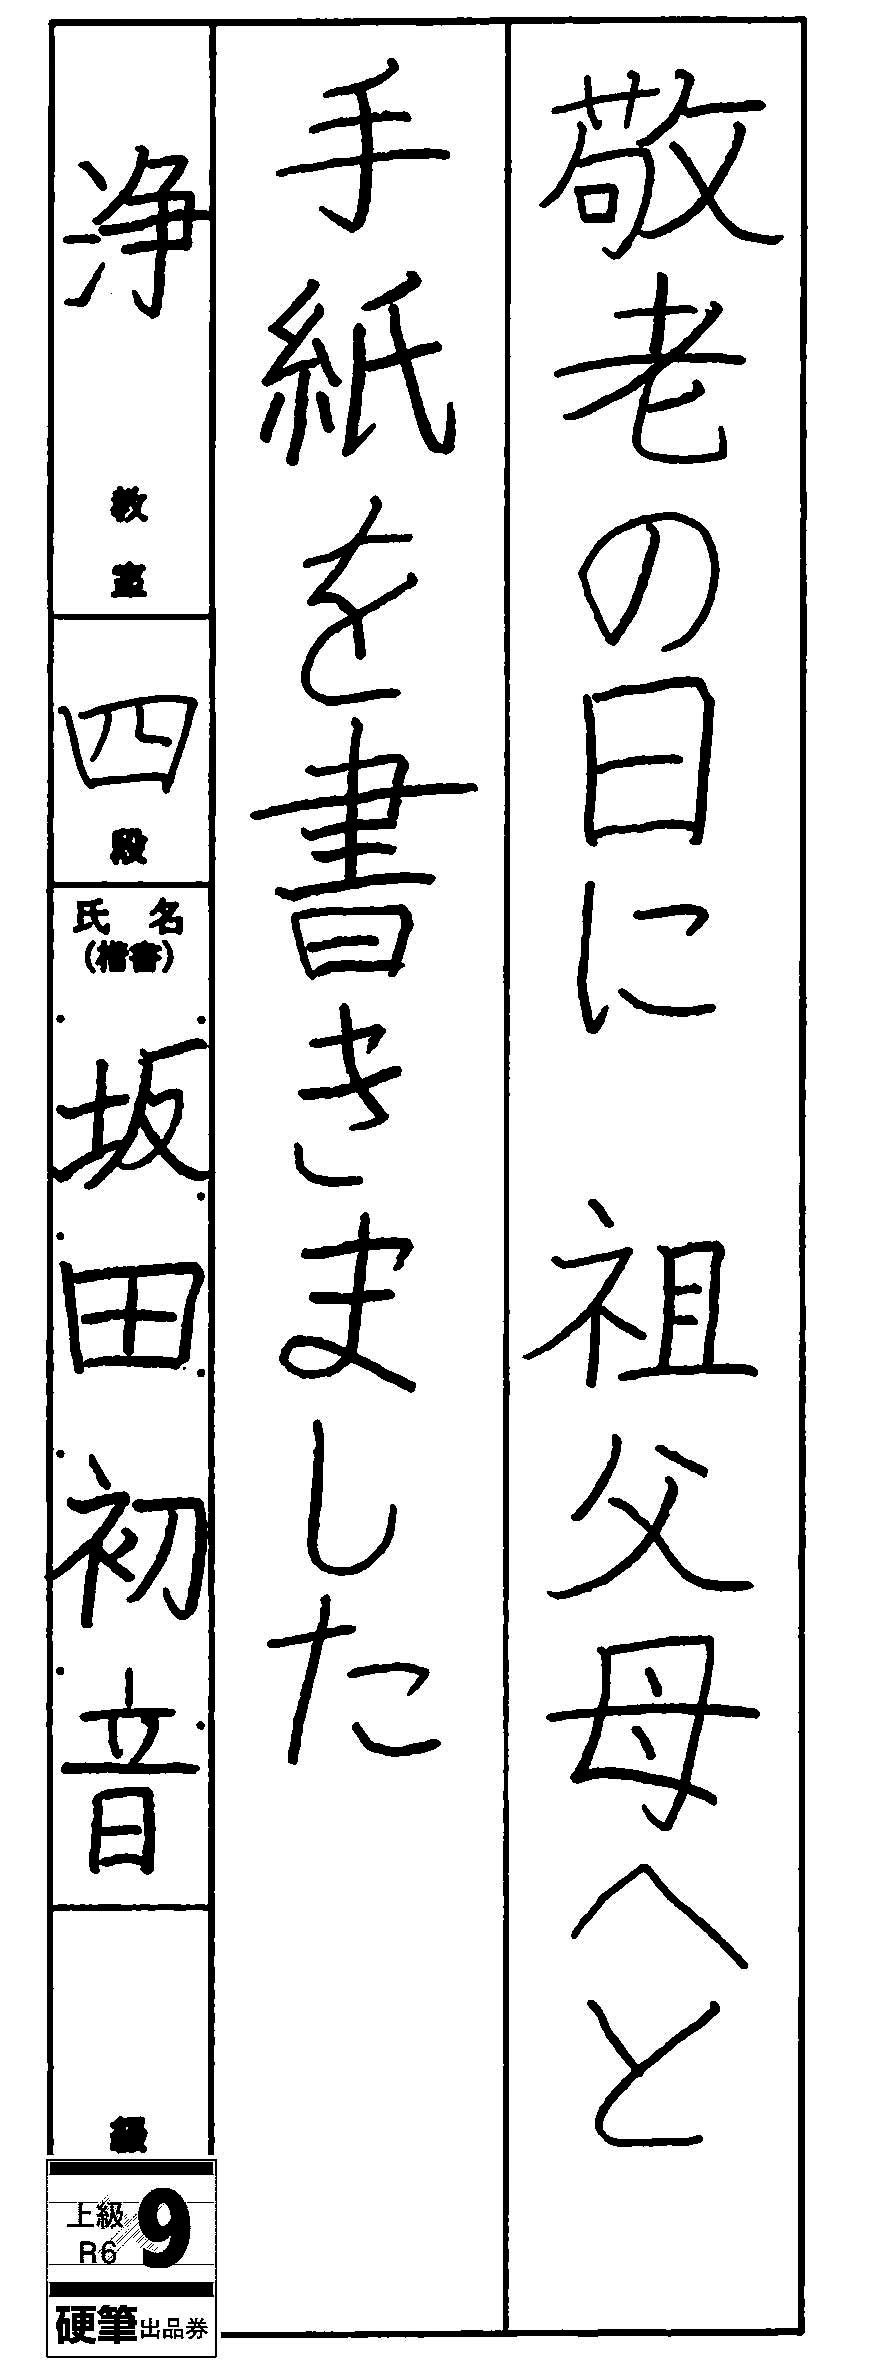 敬老の日に　祖父母へと
手紙を書きました
浄
教室
四
段
氏名
(楷書)
坂田初音
級
上級
R6
9
硬筆出品券